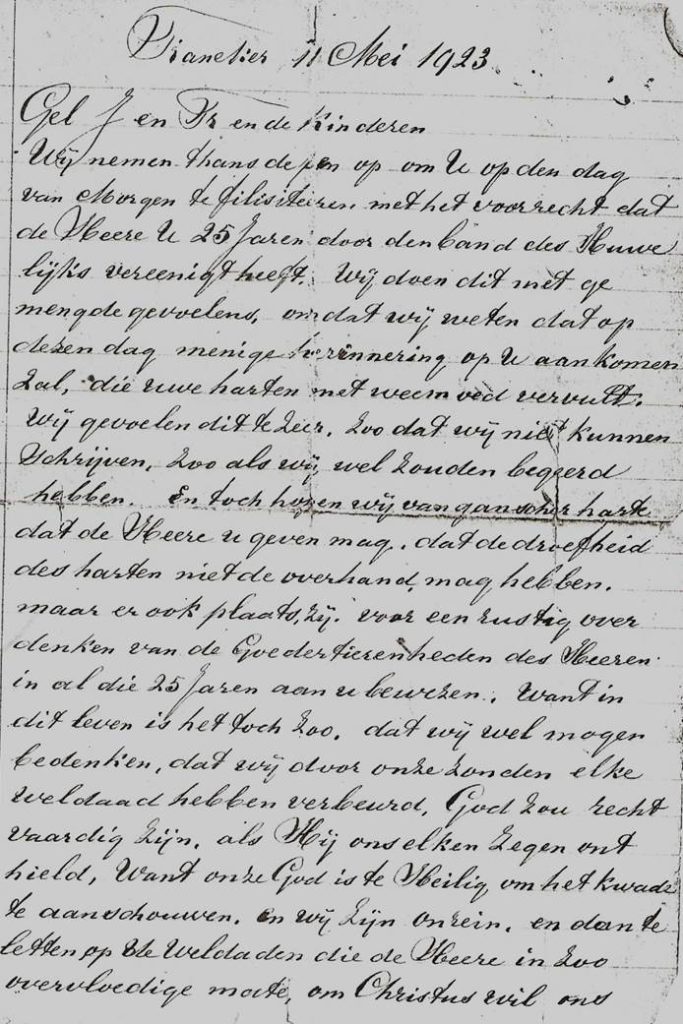 Franeker 11 Mei 1923.
Gel J en Tr en de Kinderen
Wij nemen thans de pen op om U op den dag
van Morgen te filisiteeren met het voorrecht dat
de Heere U 25 Jaren door den band des Huwe
lijks vereenigt heeft. Wij doen dit met ge
mengde gevoelens, omdat wij weten dat op
dezen dag menige herinnering op U aankomen
zal, die uwe harten met weemoed vervult.
Wij gevoelen dit te zeer, zoo dat wij niet kunnen
Schrijven, zoo als wij wel zouden begeerd
hebben. En toch hopen wij van ganscher harte
dat de Heere u geven mag, dat de droefheid
des harten niet de overhand, mag hebben.
maar er ook plaats, zij. voor een rustig over
denken van de Goedertierenheden des Heeren.
in al die 25 Jaren aan u bewezen. Want in
dit leven is het toch zoo, dat wij wel mogen
bedenken, dat wij door onze zonden elke
weldaad hebben verbeurd, God zou recht
vaardig zijn, als Hij ons elken zegen ont
hield, Want onze God is te Heilig om het kwade
te aanschouwen, en wij zijn onrein, en dan te
letten op de weldaden die de Heere in zoo
overvloedige mate, om Christus wil ons